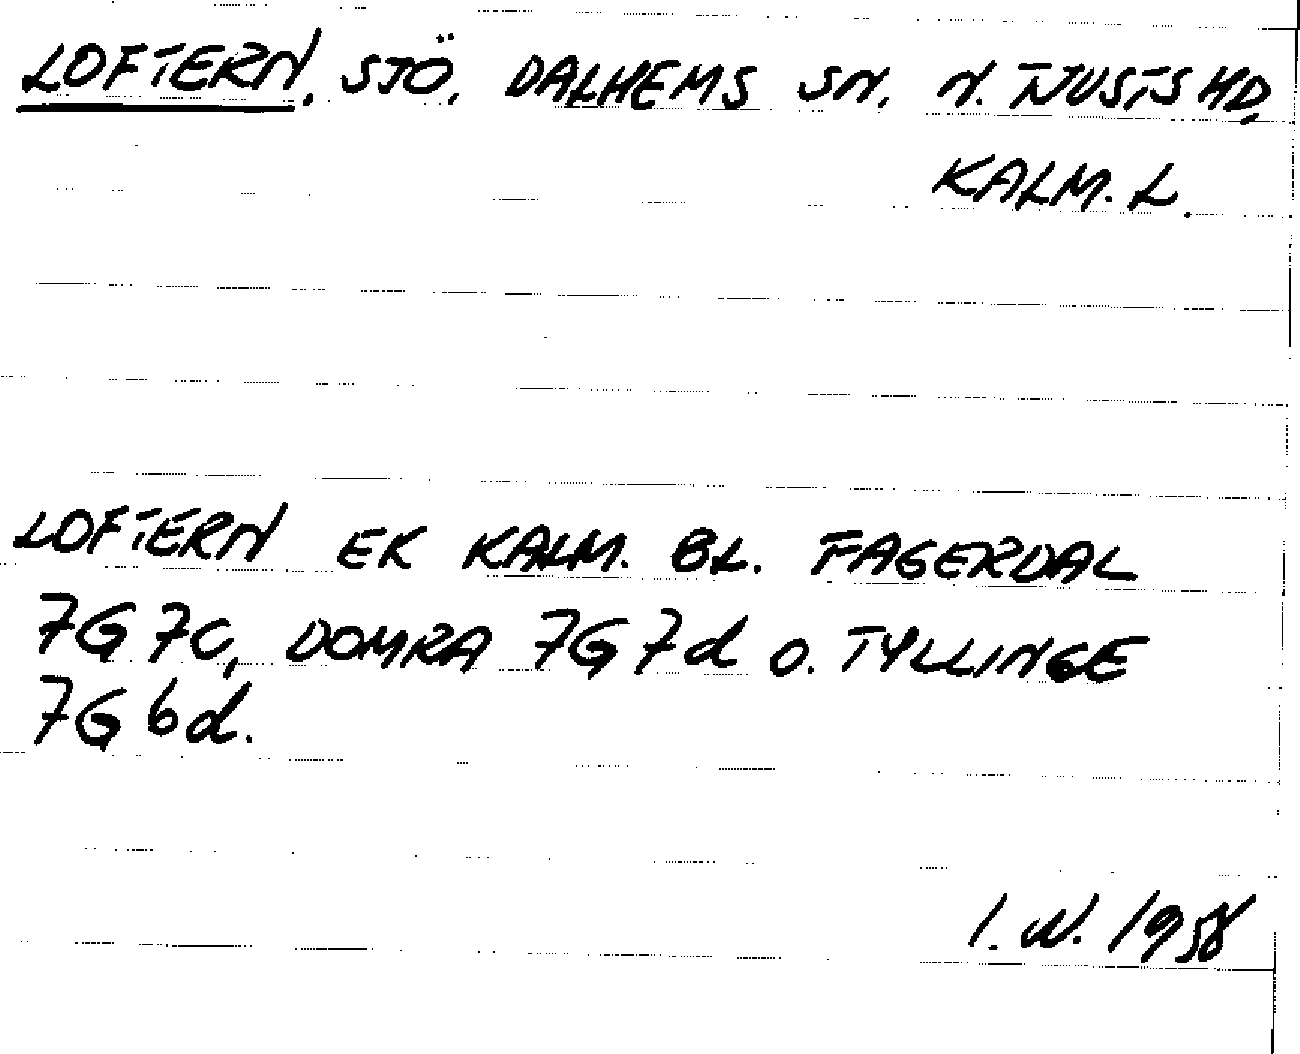 LOFTERN, SJÖ, DALHEMS SN, N. TJUSTS HD,
KALM. L.
LOFTERN EK KALM. BL. FAGERDAL
7G 7C, DOMRA 7G 7d O. TYLLINGE
7G 6d.
I. W. 1958